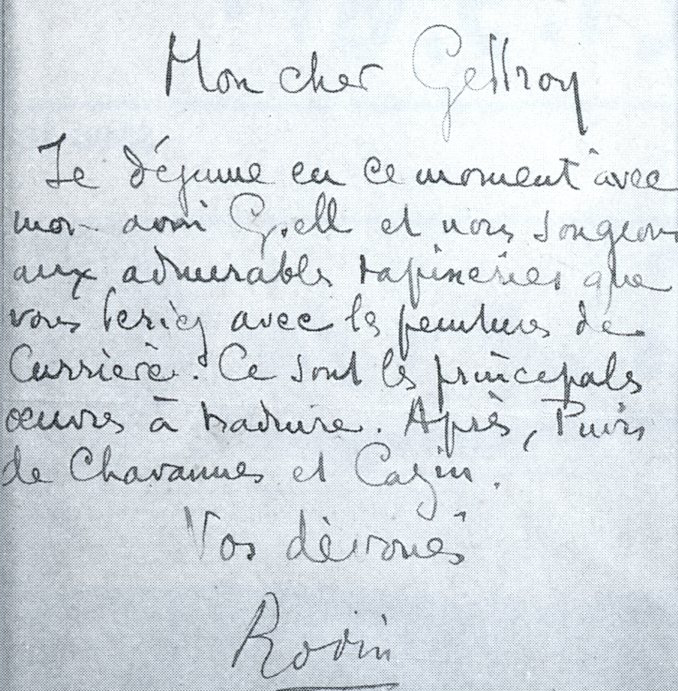 Mon cher Geffroy
Je déjeune en ce moment avec
mon ami Gsell et nous songeons
aux admirables tapisseries que
vous feriez avec les peintures de
Carrière. Ce sont les principales
œuvres à traduire. Après, Puvis
de Chavannes et Cazin.
Vos dévoués
Rodin